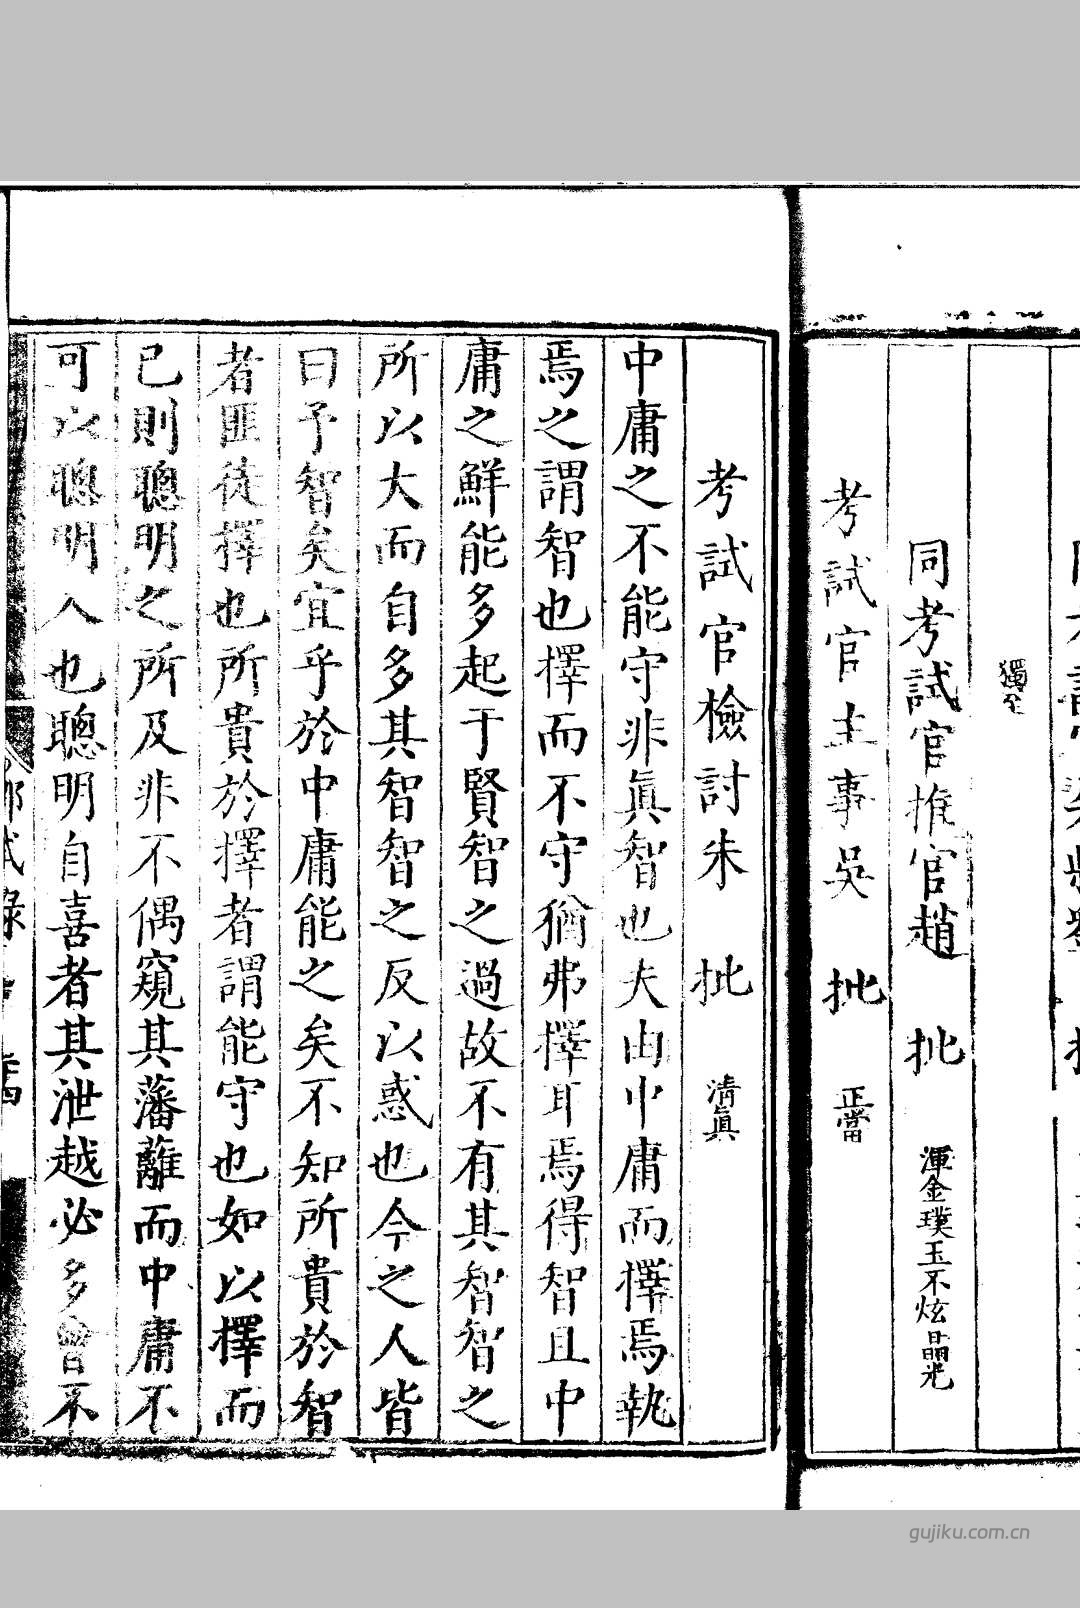 獨至
同考試官推官趙　批　渾金璞玉不炫晶光
考試官主事吳　批　正當
考試官檢討朱　批　清眞
中庸之不能守非眞智也夫由中庸而擇焉執
焉之謂智也擇而不守猶弗擇耳焉得智且中
庸之鮮能多起于賢智之過故不有其智智之
所以大而自多其智智之反以惑也今之人皆
曰予智矣宜乎於中庸能之矣不知所貴於智
者匪徒擇也所貴於擇者謂能守也如以擇而
已則聰明之所及非不偶窺其藩蘺而中庸不
可以聰明人也聰明自喜者其泄越必多曾不
試錄
gujiku.com.cn